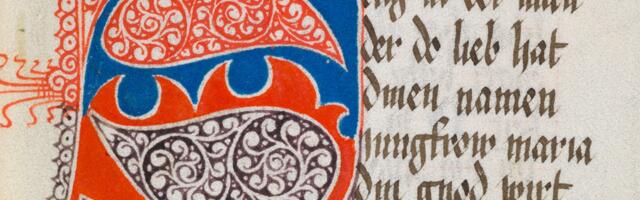 der do lieb hat
dinen namen
jungfrow maria
din gnod wirt